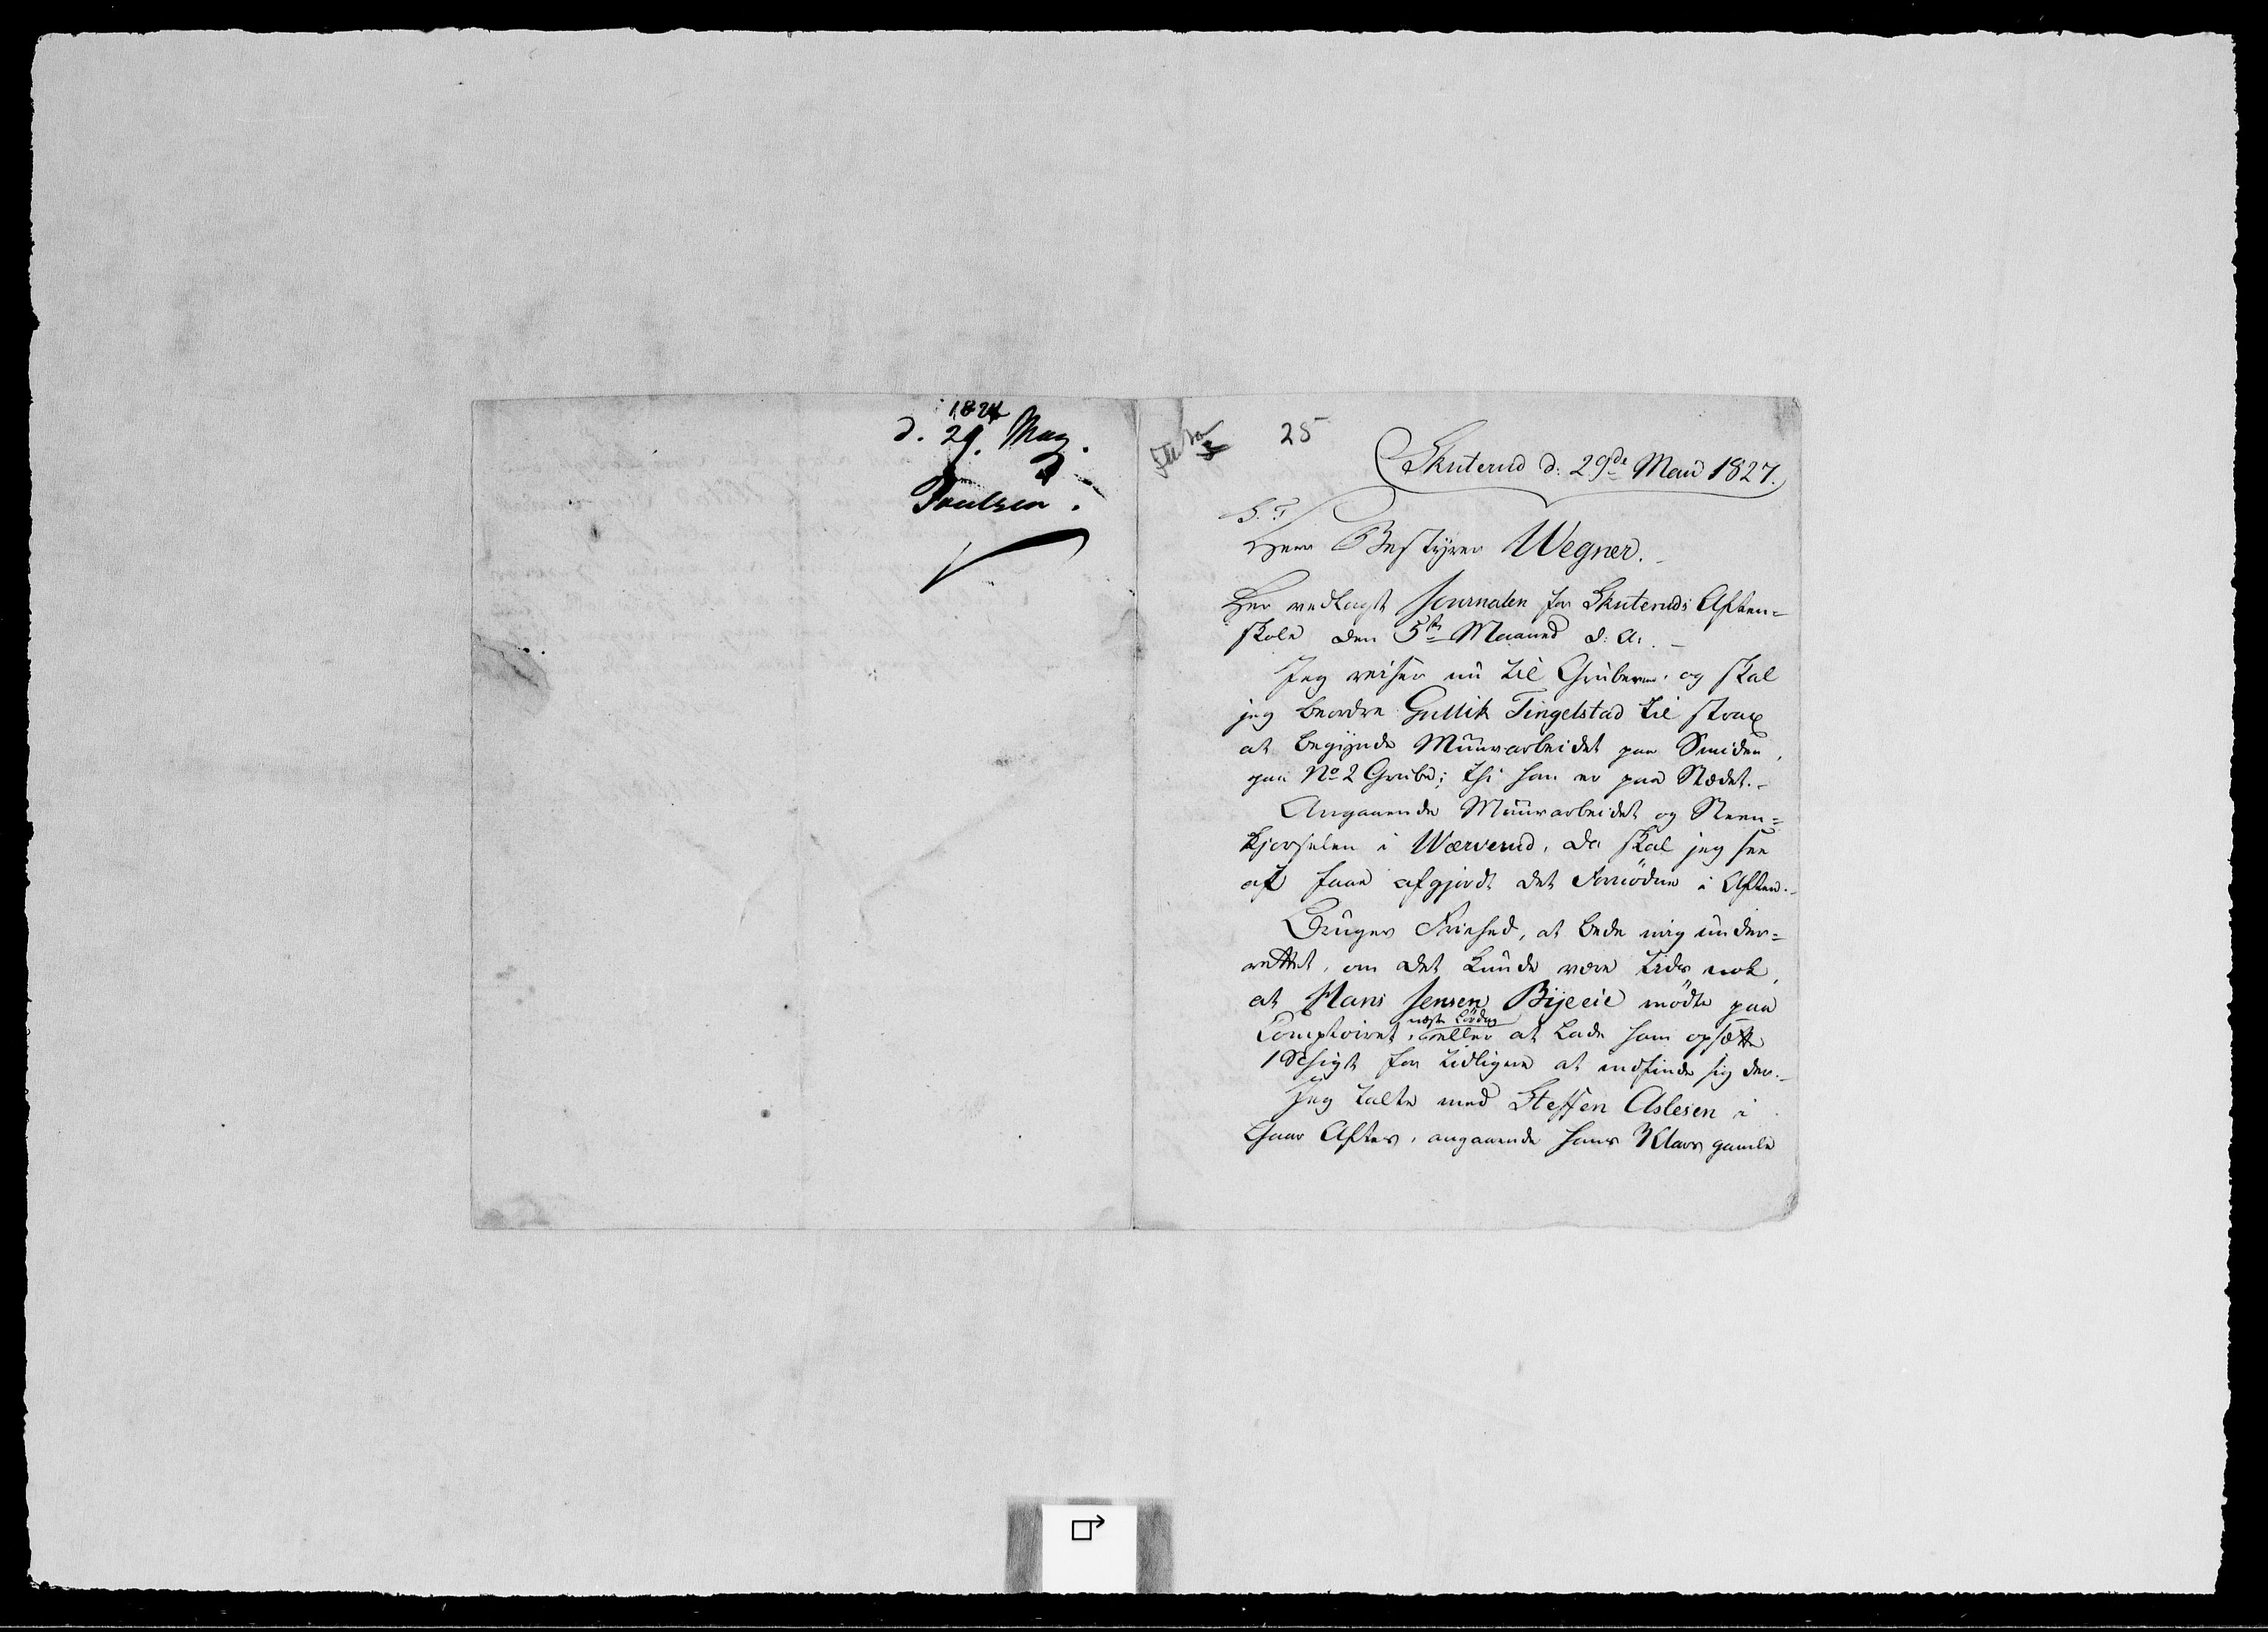 1827
d. 29. May.
Poulsen.
25
Skuterud d: 29de Maii 1827.
S. T.
Herr Bestÿrer Wegner.
Her vedlagt Journalen for Skuteruds Aften=
skole den 5te Maaned d: A:
Jeg reiser nu til Gruberne og skal
jeg beordre Gullik Tingelstad til strax
at begÿnde Muurarbeidet paa Smiden
paa No 2 Grube; thi han er paa Stædet.
Angaaende Muurarbeidet og Steen=
kjørselen i Wærverud, da skal jeg see
at faae afgjordt det Fornödne i Aften.
Bruger Friehed, at bede mig under=
rettet, om det kunde være tids nok,
at Hans Jensen Bÿeeie mödte paa
Comptoiret, næste Lördag eller at lade ham opsætte
1 Schigt for tidligere at indfinde sig der.
Jeg talte med Steffen Aslesen i
Gaar Aftes, angaaende hans gamle